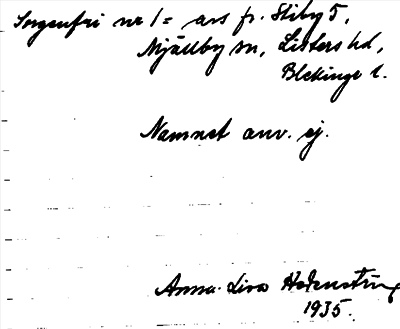 Sorgenfri nr 1 = avs fr. Stiby 5,
Mjällby sn, Listers hd,
Blekinge l.
Namnet anv. ej.
Anna-Lisa
1935.